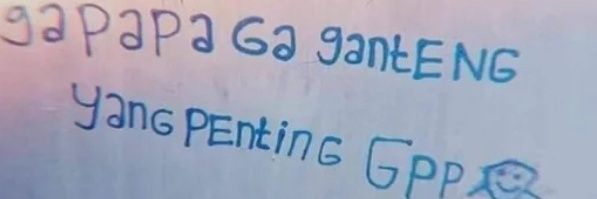 gaPaPa Ga gantENG
yanG PEntinG GPP